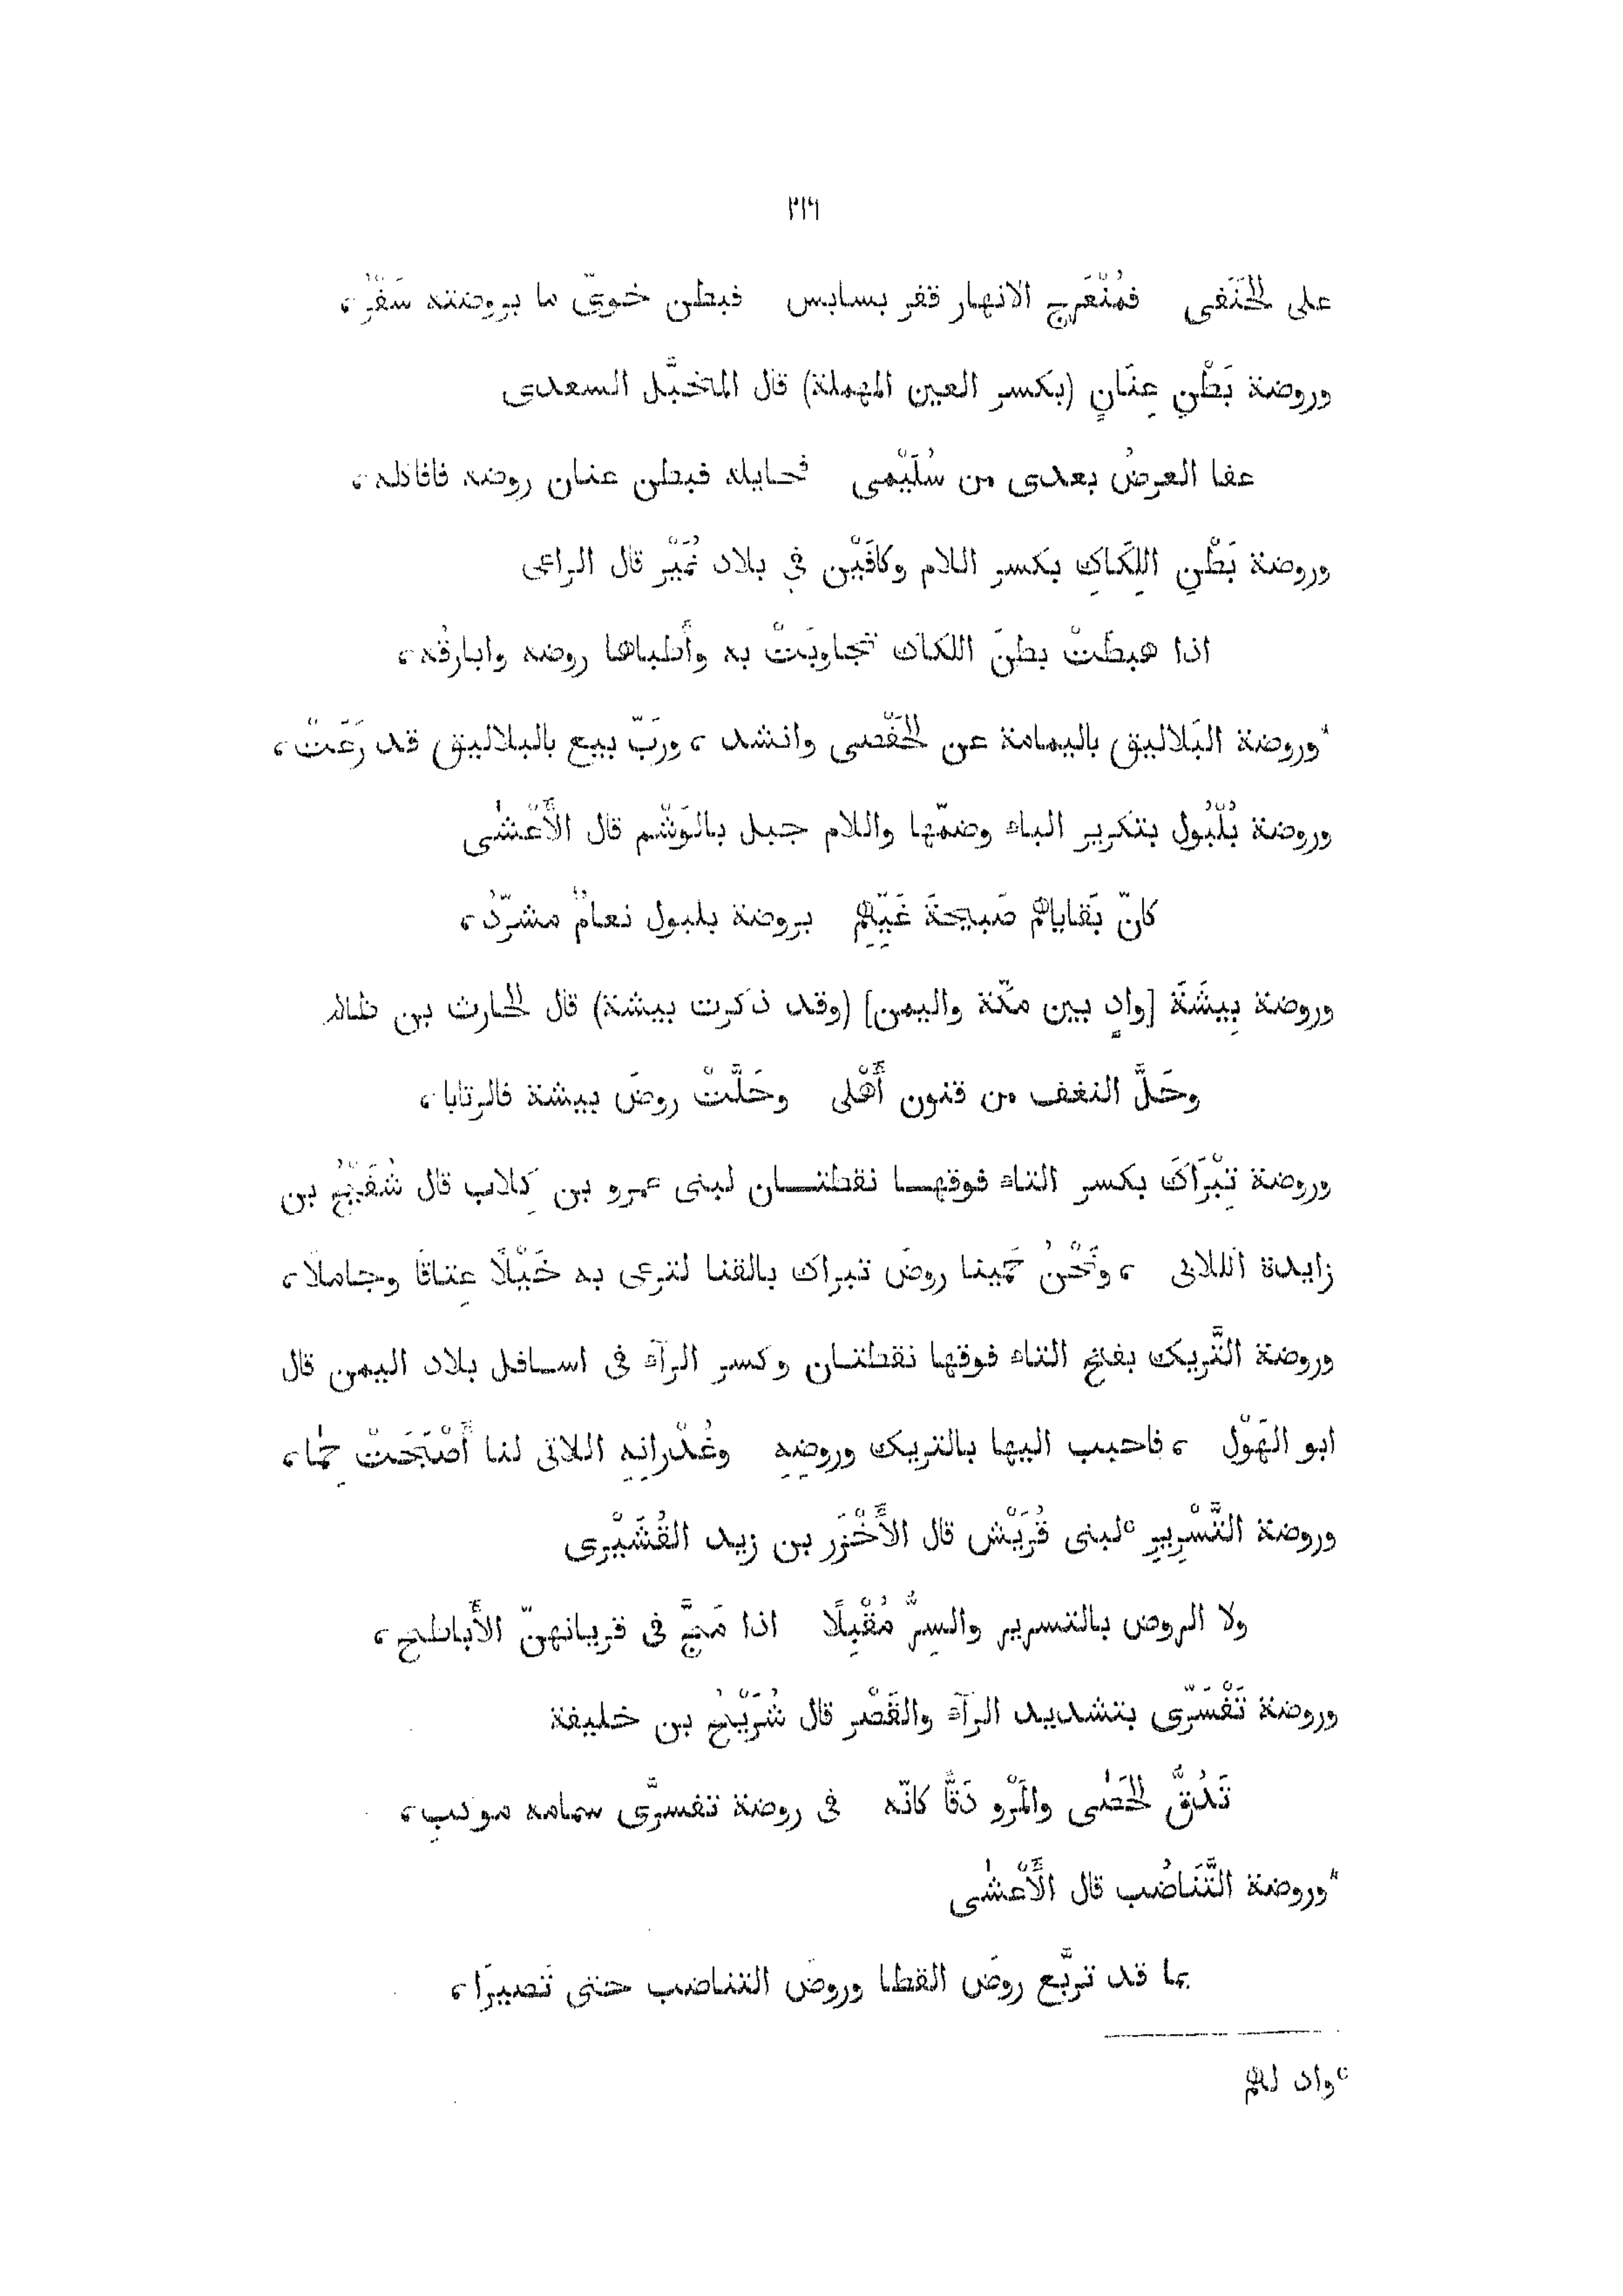 ٢١٦
على الحَنَفى فمُنْعَرج الانهار قفر بسابس فبطن خوىّ ما بروضته سَفْرُ،
وروضة بَطْنِ عِنَانٍ (بكسر العين المهملة) قال المخبَّل السعدى
عفا العرضُ بعدى من سُلَيْمى فحايله فبطن عنان روضه فافاكله،
وروضة بَطْنِ اللِكَاكِ بكسر اللام وكافَيْن في بلاد نُمَيْر قال الراعى
اذا هبطتْ بطنَ اللكاك تجاوبَتْ به وأطباها روضه وابارقُه،
*وروضة البَلاليق باليمامة عن الحَفْصى وانشد، وربّ بيع بالبلاليق قد رَعَتْ،
وروضة بُلْبُول بتكرير الباء وضمّها واللام جبل بالوَشْم قال الأَعْشٰى
كانّ بَقاياهم صَبيحةَ غَيّهِم بروضة بلبول نعامٌ مشرّدُ،
وروضة بِيشَةَ [وادٍ بين مكّة واليمن] (وقد ذكرت بيشة) قال الحارث بن ظالم
وحَلَّ النغف من قنون أَهْلى وحَلَّتْ روضَ بيشة فالرتابا،
وروضة تِبْرَاكَ بكسر التاء فوقهـا نقطتـان لبنى عمرو بن كِلاب قال شُفَيْحُ بن
زايدة الللابى ، ونَحْنُ حمينا روضَ تبراك بالقنا لنرعى به خَيْلًا عِتاقًا وجاملًا،
وروضة التَّرِيك بفتح التاء فوقها نقطتـان وكسر الرآء فى اسـافل بلاد اليمن قال
ابو الهَوْل ، فاحبب اليها بالتريك وروضِهِ وغُدْرانِهِ اللاتى لنا أَصْبَحَتْ حِمًا،
وروضة التَّسْرِيرِ ᶜلبنى قُرَيْش قال الأَخْزَر بن زيد القُشَيْرى
ولا الروض بالتسرير والسِرُّ مُقْبِلًا اذا مَجَّ فى قريانهنّ الأَباطح،
وروضة تَفْسَرّى بتشديد الرآء والقَصْر قال شُرَيْحُ بن خليفة
تَدُقُّ الحَصٰى والمَرْو دَقًّا كانّه فى روضة تفسرَّى سمامه موكبِ،
*وروضة التَّنَاضُب قال الأَعْشٰى
بما قد تربَّع روضَ القطا وروضَ التناضب حتى تَصيرَا،
ᶜواد لهم